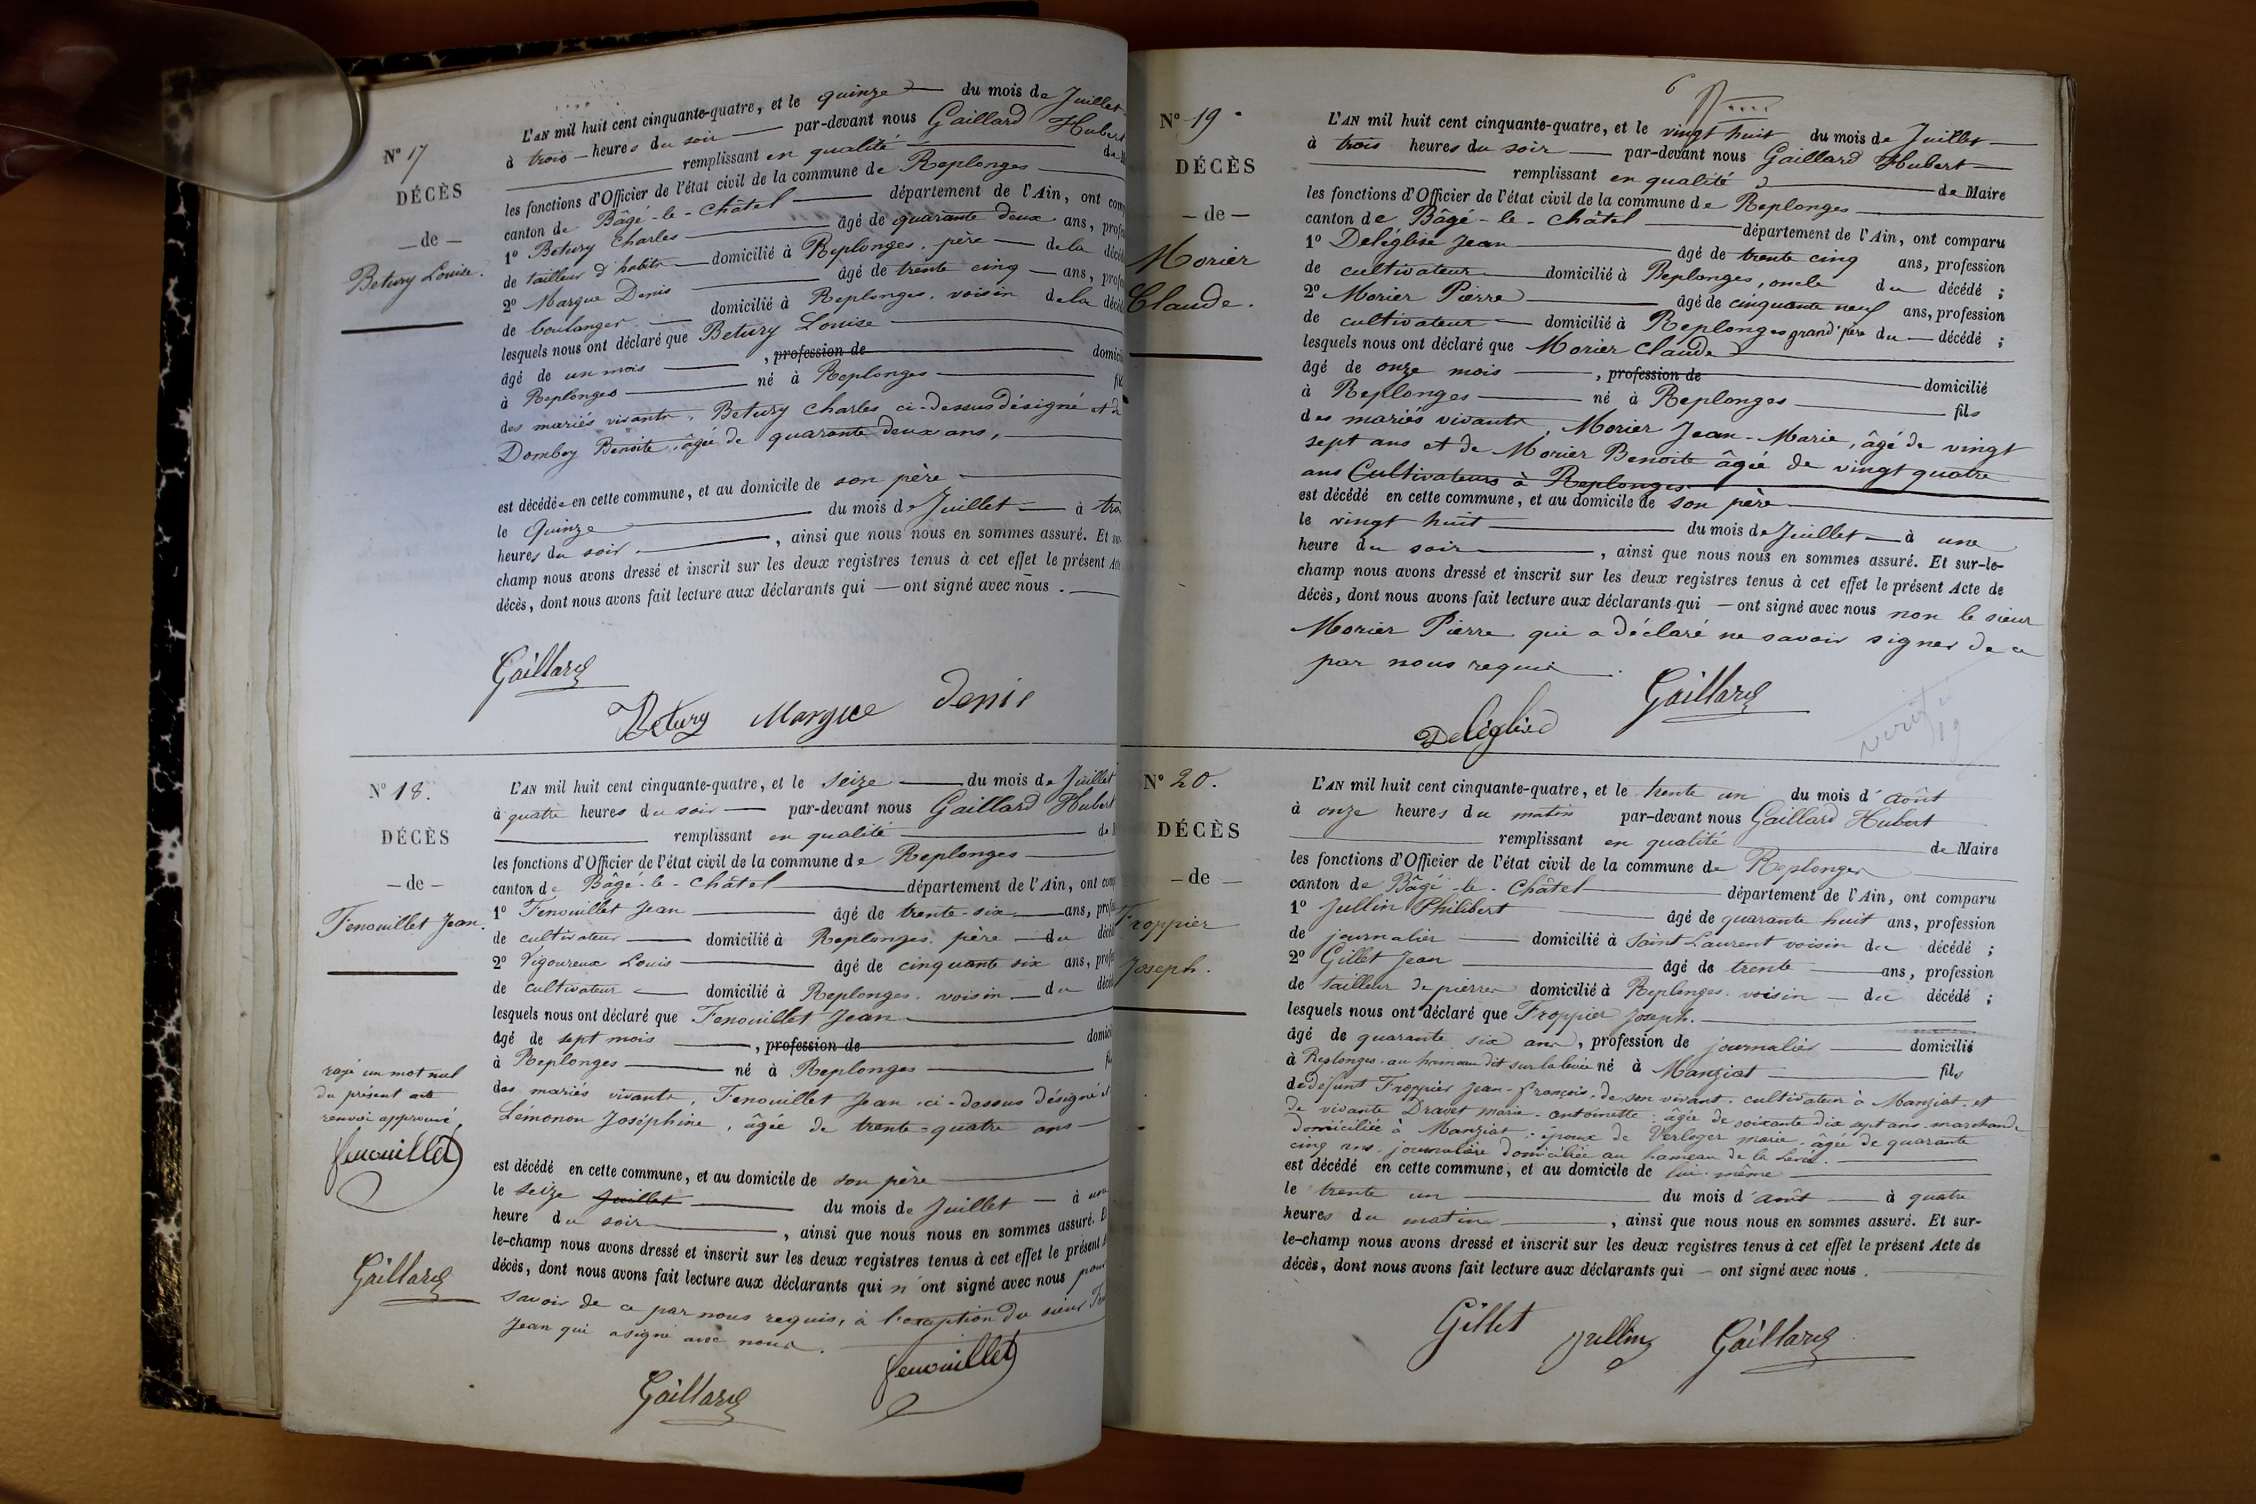 Nº 17
DÉCÈS
— de —
Betury Louise.
L'AN mil huit cent cinquante-quatre, et le quinze du mois de Juillet
à trois heures du soir par-devant nous Gaillard Hubert
remplissant en qualité de
les fonctions d'Officier de l'état civil de la commune de Replonges
canton de Bâgé-le-Châtel département de l'Ain, ont
1º Betury Charles âgé de quarante deux ans,
de tailleur d'habits domicilié à Replonges. père de la
2º Margue Denis âgé de trente cinq ans,
de boulanger domicilié à Replonges. voisin de la
lesquels nous ont déclaré que Betury Louise
âgé de un mois , profession de
à Replonges né à Replonges
des mariés vivants, Betury Charles ci-dessus désigné et de
Dombey Benoite, âgée de quarante deux ans,
est décédée en cette commune, et au domicile de son père
le Quinze du mois de Juillet à
heures du soir , ainsi que nous nous en sommes assuré. Et
champ nous avons dressé et inscrit sur les deux registres tenus à cet effet le présent
décès, dont nous avons fait lecture aux déclarants qui — ont signé avec nous.
Gaillard
Betury Margue Denis
Nº 18.
DÉCÈS
— de —
Fenouillet Jean.
L'AN mil huit cent cinquante-quatre, et le seize du mois de Juillet
à quatre heures du soir par-devant nous Gaillard Hubert
remplissant en qualité de
les fonctions d'Officier de l'état civil de la commune de Replonges
canton de Bâgé-le-Châtel département de l'Ain, ont
1º Fenouillet Jean âgé de trente-six ans,
de cultivateur domicilié à Replonges. père du
2º Vigoureux Louis âgé de cinquante six ans,
de cultivateur domicilié à Replonges. voisin du
lesquels nous ont déclaré que Fenouillet Jean
âgé de sept mois , profession de
à Replonges né à Replonges
des mariés vivants, Fenouillet Jean ci-dessus désigné et
Lemonon Joséphine, âgée de trente-quatre ans
est décédé en cette commune, et au domicile de son père
le seize Juillet du mois de Juillet à une
heure du soir , ainsi que nous nous en sommes assuré.
le-champ nous avons dressé et inscrit sur les deux registres tenus à cet effet le présent
décès, dont nous avons fait lecture aux déclarants qui n'ont signé avec nous pour
savoir de ce par nous requis, à l'exception du sieur
Jean qui a signé avec nous.
Gaillard fenouillet
rayé un mot nul
du présent acte
renvoi approuvé,
fenouillet
Gaillard
6
Nº 19.
DÉCÈS
— de —
Morier
Claude.
L'AN mil huit cent cinquante-quatre, et le vingt huit du mois de Juillet
à trois heures du soir par-devant nous Gaillard Hubert
remplissant en qualité de Maire
les fonctions d'Officier de l'état civil de la commune de Replonges
canton de Bâgé-le-Châtel département de l'Ain, ont comparu
1º Deléglise Jean âgé de trente cinq ans, profession
de cultivateur domicilié à Replonges, oncle du décédé ;
2º Morier Pierre âgé de cinquante neuf ans, profession
de cultivateur domicilié à Replonges grand'père du décédé ;
lesquels nous ont déclaré que Morier Claude
âgé de onze mois , profession de domicilié
à Replonges né à Replonges fils
des mariés vivants, Morier Jean-Marie, âgé de vingt
sept ans et de Morier Benoite âgée de vingt quatre
ans Cultivateurs à Replonges
est décédé en cette commune, et au domicile de son père
le vingt huit du mois de Juillet à une
heure du soir , ainsi que nous nous en sommes assuré. Et sur-le-
champ nous avons dressé et inscrit sur les deux registres tenus à cet effet le présent Acte de
décès, dont nous avons fait lecture aux déclarants qui — ont signé avec nous non le sieur
Morier Pierre qui a déclaré ne savoir signer de ce
par nous requis.
Deléglise Gaillard
Nº 20.
DÉCÈS
— de —
Froppier
Joseph.
L'AN mil huit cent cinquante-quatre, et le trente un du mois d'août
à onze heures du matin par-devant nous Gaillard Hubert
remplissant en qualité de Maire
les fonctions d'Officier de l'état civil de la commune de Replonges
canton de Bâgé-le-Châtel département de l'Ain, ont comparu
1º Jullin Philibert âgé de quarante huit ans, profession
de journalier domicilié à Saint Laurent voisin du décédé ;
2º Gillet Jean âgé de trente ans, profession
de tailleur de pierres domicilié à Replonges. voisin du décédé ;
lesquels nous ont déclaré que Froppier Joseph.
âgé de quarante six ans, profession de journalier domicilié
à Replonges au hameau dit sur la levée né à Manziat fils
de défunt Froppier Jean-françois, de son vivant cultivateur à Manziat et
de vivante Dravet marie-antoinette, âgée de soixante dix sept ans marchande
domiciliée à Manziat, époux de Verloger marie âgée de quarante
cinq ans, journalière domiciliée au hameau de la Levée.
est décédé en cette commune, et au domicile de lui-même
le trente un du mois d'août à quatre
heures du matin , ainsi que nous nous en sommes assuré. Et sur-
le-champ nous avons dressé et inscrit sur les deux registres tenus à cet effet le présent Acte de
décès, dont nous avons fait lecture aux déclarants qui — ont signé avec nous.
Gillet Jullin Gaillard